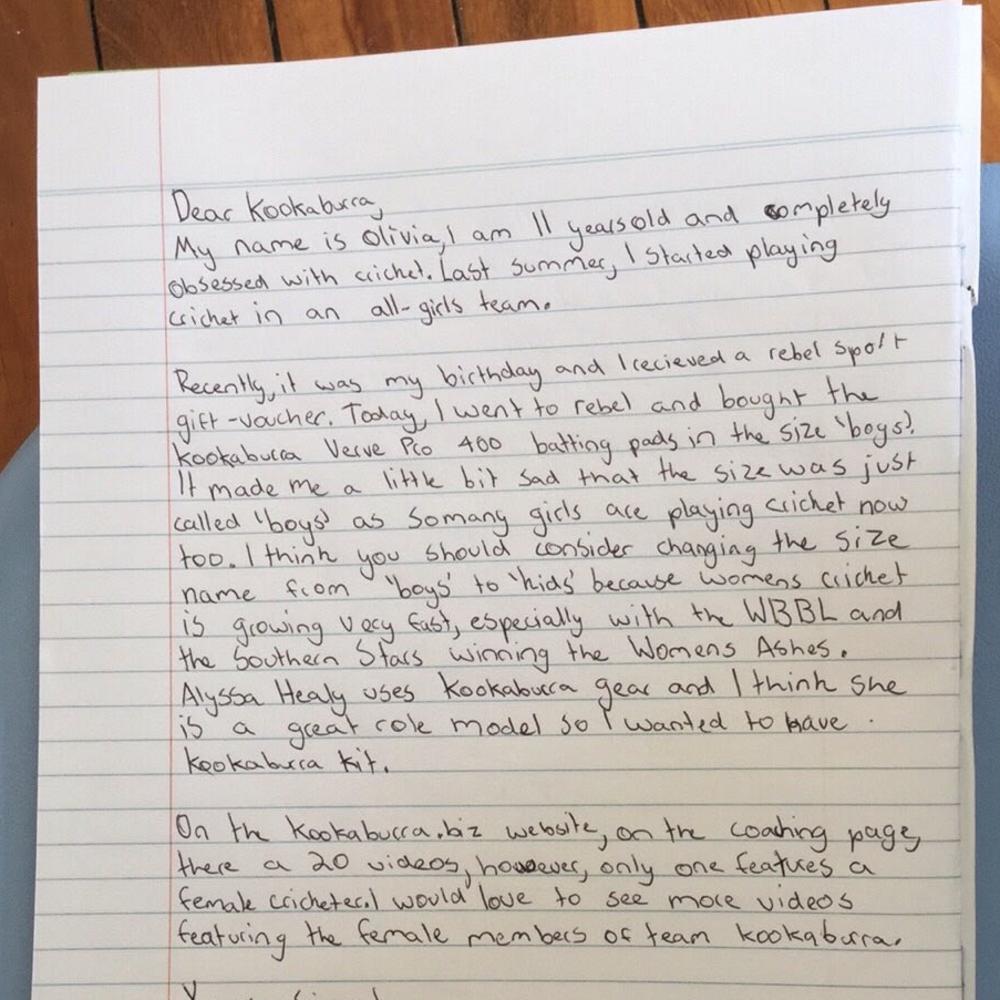 Dear Kookaburra,
My name is Olivia, I am 11 years old and completely
obsessed with cricket. Last summer, I started playing
cricket in an all-girls team.
Recently, it was my birthday and I recieved a rebel sport
gift-voucher. Today, I went to rebel and bought the
Kookaburra Verve Pro 400 batting pads in the size 'boys'.
It made me a little bit sad that the size was just
called 'boys' as so many girls are playing cricket now
too. I think you should consider changing the size
name from 'boys' to 'kids' because womens cricket
is growing very fast, especially with the WBBL and
the Southern Stars winning the Womens Ashes.
Alyssa Healy uses Kookaburra gear and I think she
is a great role model so I wanted to have
Kookaburra kit.
On the Kookaburra.biz website, on the coaching page,
there a 20 videos, however, only one features a
female cricketer. I would love to see more videos
featuring the female members of team kookaburra.